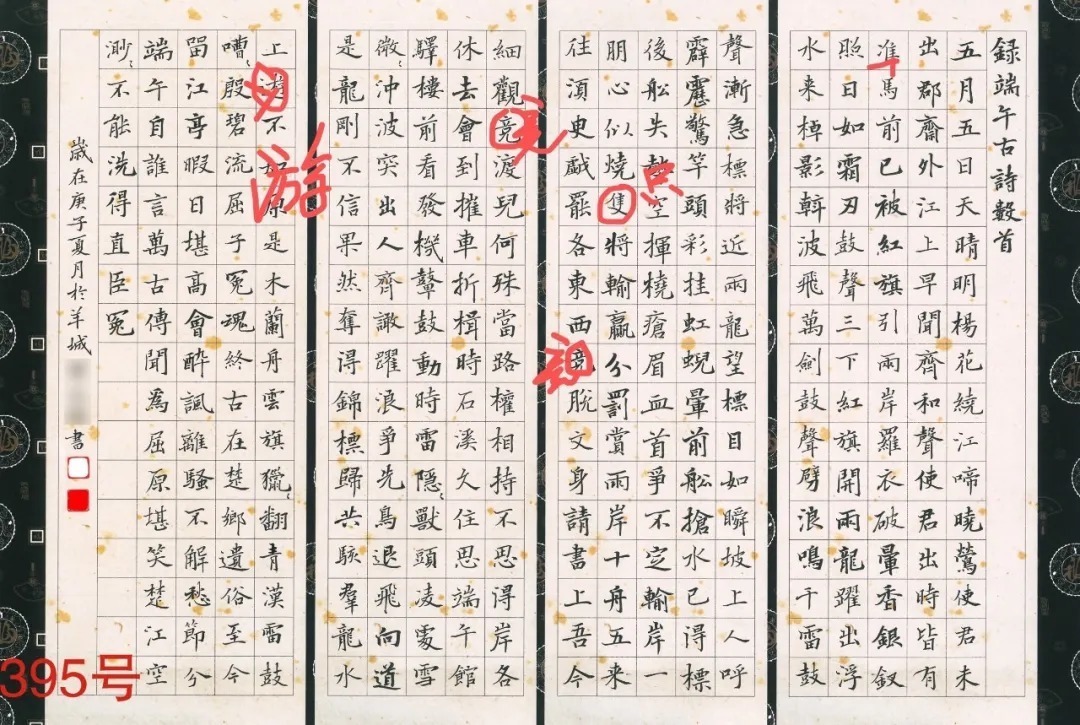 録端午古詩數首
五月五日天晴明楊花繞江啼曉鶯使君未
出郡齋外江上早聞齊和聲使君出時皆有
准馬前已被紅旗引兩岸羅衣破暈香銀釵
照日如霜刃鼓聲三下紅旗開兩龍躍出浮
水来棹影斡波飛萬劍鼓聲劈浪鳴千雷鼓
聲漸急標將近兩龍望標目如瞬坡上人呼
霹靂驚竿頭彩挂虹蜺暈前船搶水已得標
後船失勢空揮橈瘡眉血首爭不定輸岸一
朋心似燒隻將輸贏分罰賞兩岸十舟五来
往須臾戯罷各東西競脫文身請書上吾今
細觀競渡兒何殊當路權相持不思得岸各
休去會到摧車折楫時石溪久住思端午館
驛樓前看發機鼙鼓動時雷隱〻獸頭凌處雪
微〻沖波突出人齊譀躍浪爭先鳥退飛向道
是龍剛不信果然奪得錦標歸共駭羣龍水
上游不知原是木蘭舟雲旗獵〻翻青漢雷鼓
嘈〻殷碧流屈子冤魂終古在楚鄉遺俗至今
留江亭暇日堪高會醉諷離騷不解愁節分
端午自誰言萬古傳聞為屈原堪笑楚江空
渺〻不能洗得直臣冤
歲在庚子夏月於羊城
書
点
游
395号